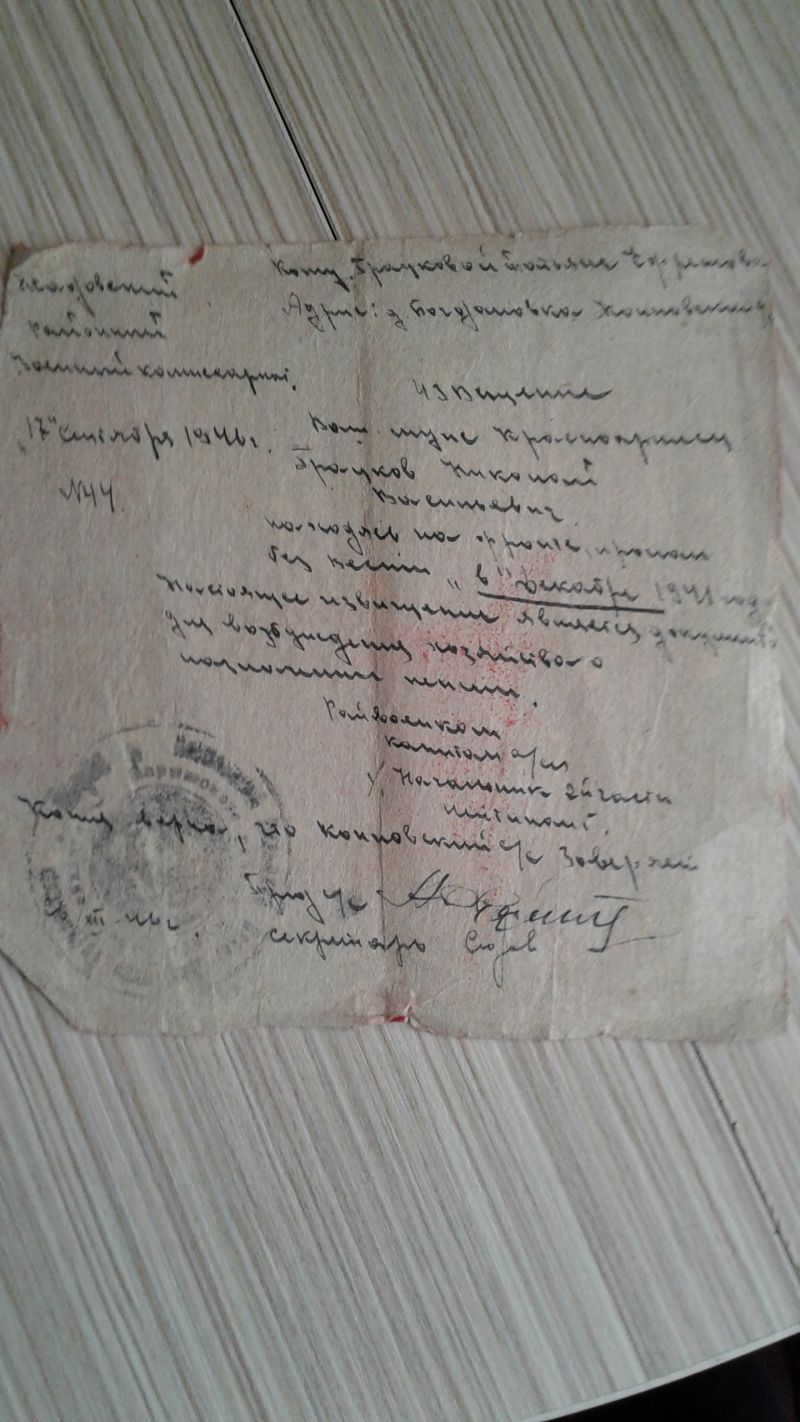 районный
Военный комиссариат.
"17" октября 1946 г.
№44.
Кому Брауковой Татьяне Ефремов
Адрес: д. Богдановка
Извещение
Ваш муж красноармеец
Брауков Николай
Васильевич
находясь на фронте, пропал
без вести "в" декабре 1941 год
Настоящее извещение является документ
для возбуждения ходайства о
назначении пенсии.
Райвоенком
капитан а/сл
Начальник 2й части
лейтинант.
Копия верна, что с/с Заверяет
Пред с/с
секретарь